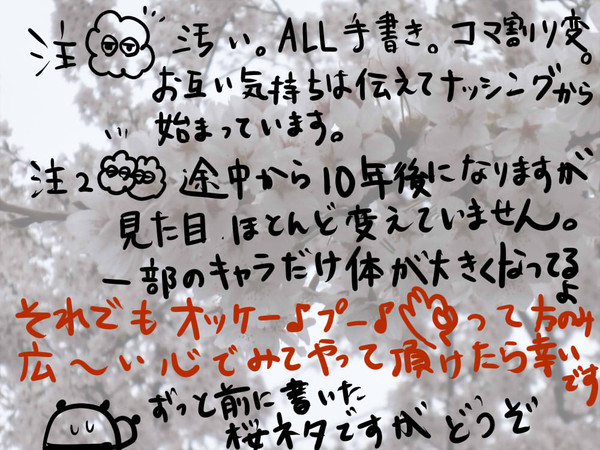 注 汚い。ALL手書き。コマ割り変。
お互い気持ちは伝えてナッシングから
始まっています。
注2 途中から10年後になりますが
見た目ほとんど変えていません。
一部のキャラだけ体が大きくなってるよ
それでもオッケー♪プー♪って方のみ
広〜い心でみてやって頂けたら幸いです
ずっと前に書いた
桜ネタですがどうぞ